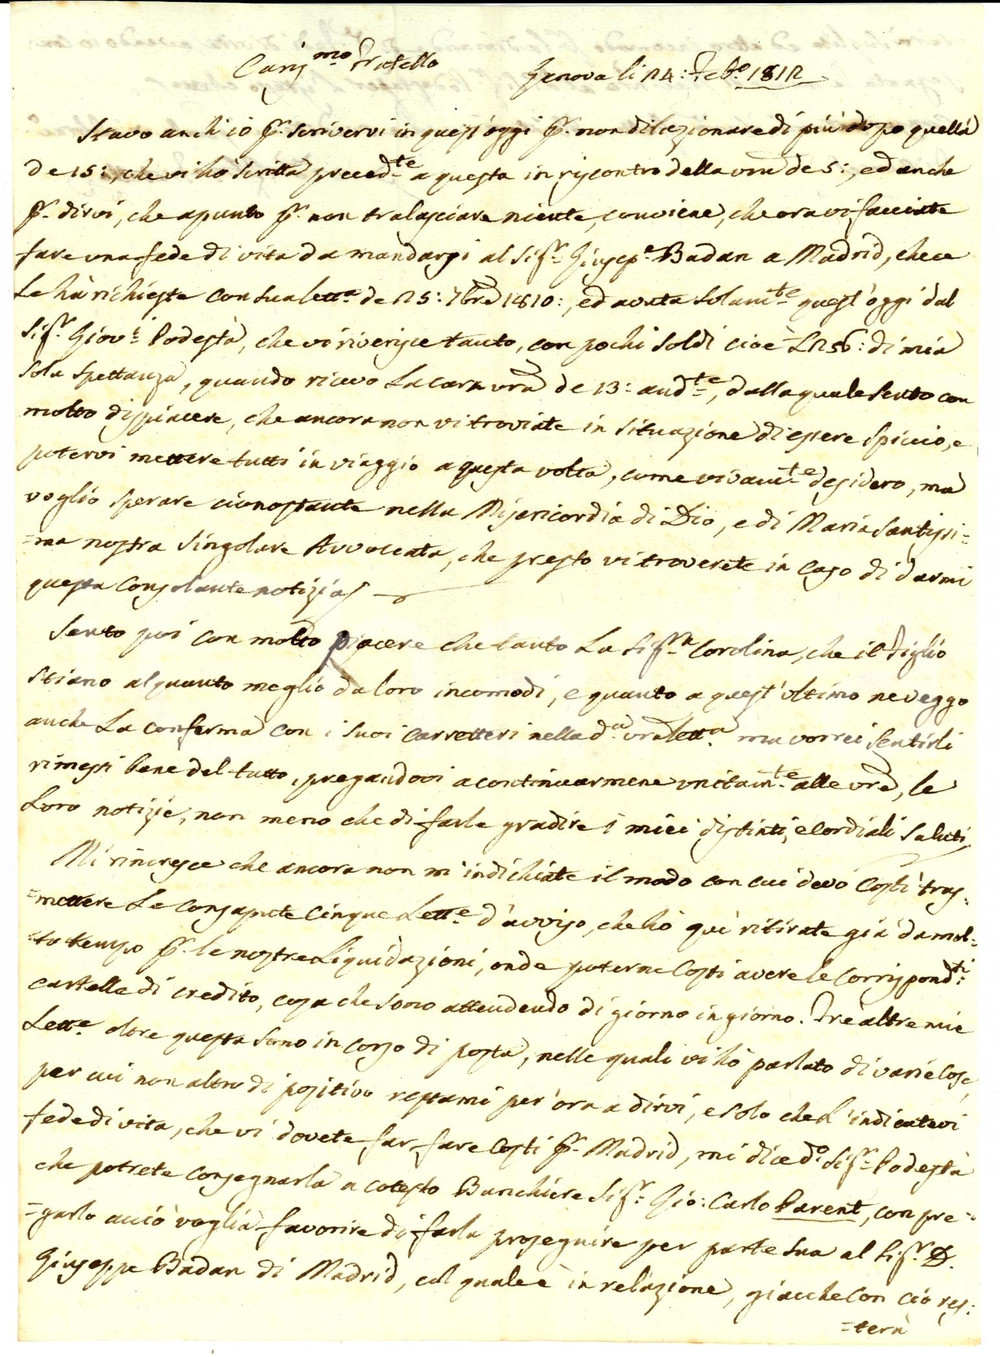 Cariss.mo Fratello Genova li 24: Feb.o 1812
Stavo anch'io p.r scrivervi in quest'oggi p.r non dilazionare di più dopo quella
de 15:, che vi hò scritta preced.te a questa in riscontro della vra de 5:, ed anche
p.r dirvi, che apunto p.r non tralasciare niente, conviene, che ora vi facciate
fare una fede di vita da mandarsi al Sig.r Giusep.e Badan a Madrid, che ce
Le hà richieste con sua lett.a de 25: 7bre 1810:, ed avuta solam.te quest'oggi dal
Sig.r Giov.i Podestà, che vi riverisce tanto, con pochi soldi cioè L. 256: di mia
sola spettanza, quando ricevo La cara vra de 13: and.te, dalla quale sento con
molto dispiacere, che ancora non vi troviate in situazione di essere spiccio, e
potervi mettere tutti in viaggio a questa volta, come vivam.te desidero, ma
voglio sperare cionostante nella Misericordia di Dio, e di Maria Santissi=
=ma nostra singolare Avvocata, che presto vi troverete in caso di darmi
questa consolante notizia
Sento poi con molto piacere che tanto La Sig.ra Carolina, che il Figlio
stiano alquanto meglio da loro incomodi, e quanto a quest'ultimo ne veggo
anche La conferma con i suoi carretteri nella d.a vra lett.a ma vorrei sentirli
rimessi bene del tutto, pregandovi a continuarmene unitam.te alle vre, le
Loro notizie, non meno che di farle gradire i miei distinti, e cordiali saluti
Mi rincresce che ancora non mi indichiate il modo con cui devo costì tras=
=mettere Le consapute cinque Lett.e d'avviso, che hò quì ritirate già da mol=
=to tempo p.r le nostre Liquidazioni, onde poterne costì avere le corrispond.ti
cartelle di credito, cosa che sono attendendo di giorno in giorno. Trè altre mie
Lett.e oltre questa sono in corso di posta, nelle quali vi hò parlato di varie cose,
per cui non altro di positivo restami per ora a dirvi, e solo che l'indicatevi
fede di vita, che vi dovete far fare costì p.r Madrid, mi dice d.o Sig.r Podestà
che potrete consegnarla a cotesto Banchiere Sig.r Gio: Carlo Parent, con pre=
=garlo acciò voglia favorire di farla proseguire per parte sua al Sig.r D.
Giuseppe Badan di Madrid, col quale è in relazione, giacche con ciò res:
=terà